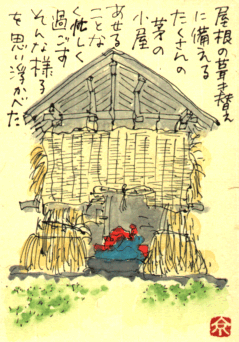 屋根の葺き替え
に備える
たくさんの
茅の
小屋
あせる
ことな
く忙しく
過ごす
そんな様子
を思い浮かべた
京